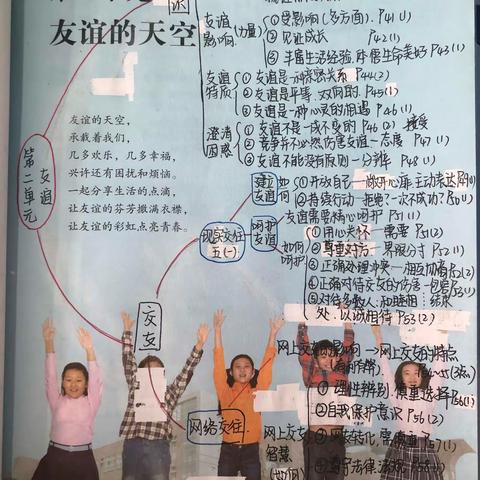 友谊的天空
友谊的天空,
承载着我们,
几多欢乐,几多幸福,
兴许还有困扰和烦恼。
一起分享生活的点滴,
让友谊的芬芳撒满衣襟,
让友谊的彩虹点亮青春。
第二单元
友谊
交友
识
友谊影响(力量)
①受影响(多方面).P41(1)
②见证成长 P42(1)
③丰富生活经验,体悟生命美好 P43(1)
友谊特质
①友谊是一种亲密关系 P44(3)
②友谊是平等、双向的. P45(1)
③友谊是一种心灵的相遇 P46(1)
澄清困惑
①友谊不是一成不变的 P46(2) 接受
②竞争并不必然伤害友谊—态度 P47(1)
③友谊不能没有原则—分辨 P48(1)
现实交往
五(一)
建立友谊
如何
①开放自己—敞开心扉,主动表达
②持续行动—拒绝?一次不成功?P50(1)
呵护友谊
友谊需要精心呵护 P51(1)
如何呵护
①用心关怀—需要 P51(2)
②尊重对方—界限分寸 P52(1)
③正确处理冲突—相互协商
④正确对待交友的伤害
处,以诚相待 P53(2)
网络交往
网上交友的影响→网上交友的特点
①理性辨别、慎重选择 P56(1)
②自我保护意识 P56(2)
网上交友智慧
(如何)
③网友转化,需慎重 P57(1)
④遵守法律、法规. P58(1)